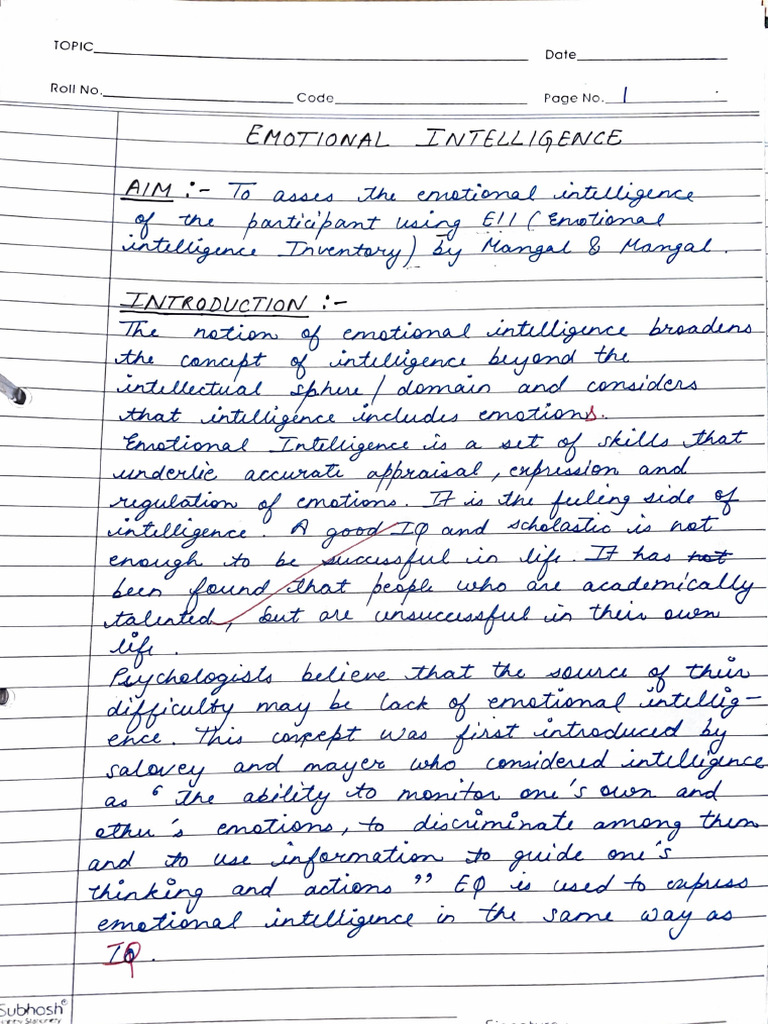 TOPIC
Date
Roll No. Code Page No. 1
EMOTIONAL INTELLIGENCE
AIM :- To asses the emotional intelligence
of the participant using EII (Emotional
intelligence Inventory) by Mangal & Mangal.
INTRODUCTION :-
The notion of emotional intelligence broadens
the concept of intelligence beyond the
intellectual sphere / domain and considers
that intelligence includes emotions.
Emotional Intelligence is a set of skills that
underlie accurate appraisal, expression and
regulation of emotions. It is the feeling side of
intelligence. A good IQ and scholastic is not
enough to be successful in life. It has not
been found that people who are academically
talented, but are unsuccessful in their own
life.
Psychologists believe that the source of their
difficulty may be lack of emotional intellig-
ence. This concept was first introduced by
salovey and mayer who considered intelligence
as " the ability to monitor one's own and
other's emotions, to discriminate among them
and to use information to guide one's
thinking and actions " EQ is used to express
emotional intelligence in the same way as
IQ.
Subhash®